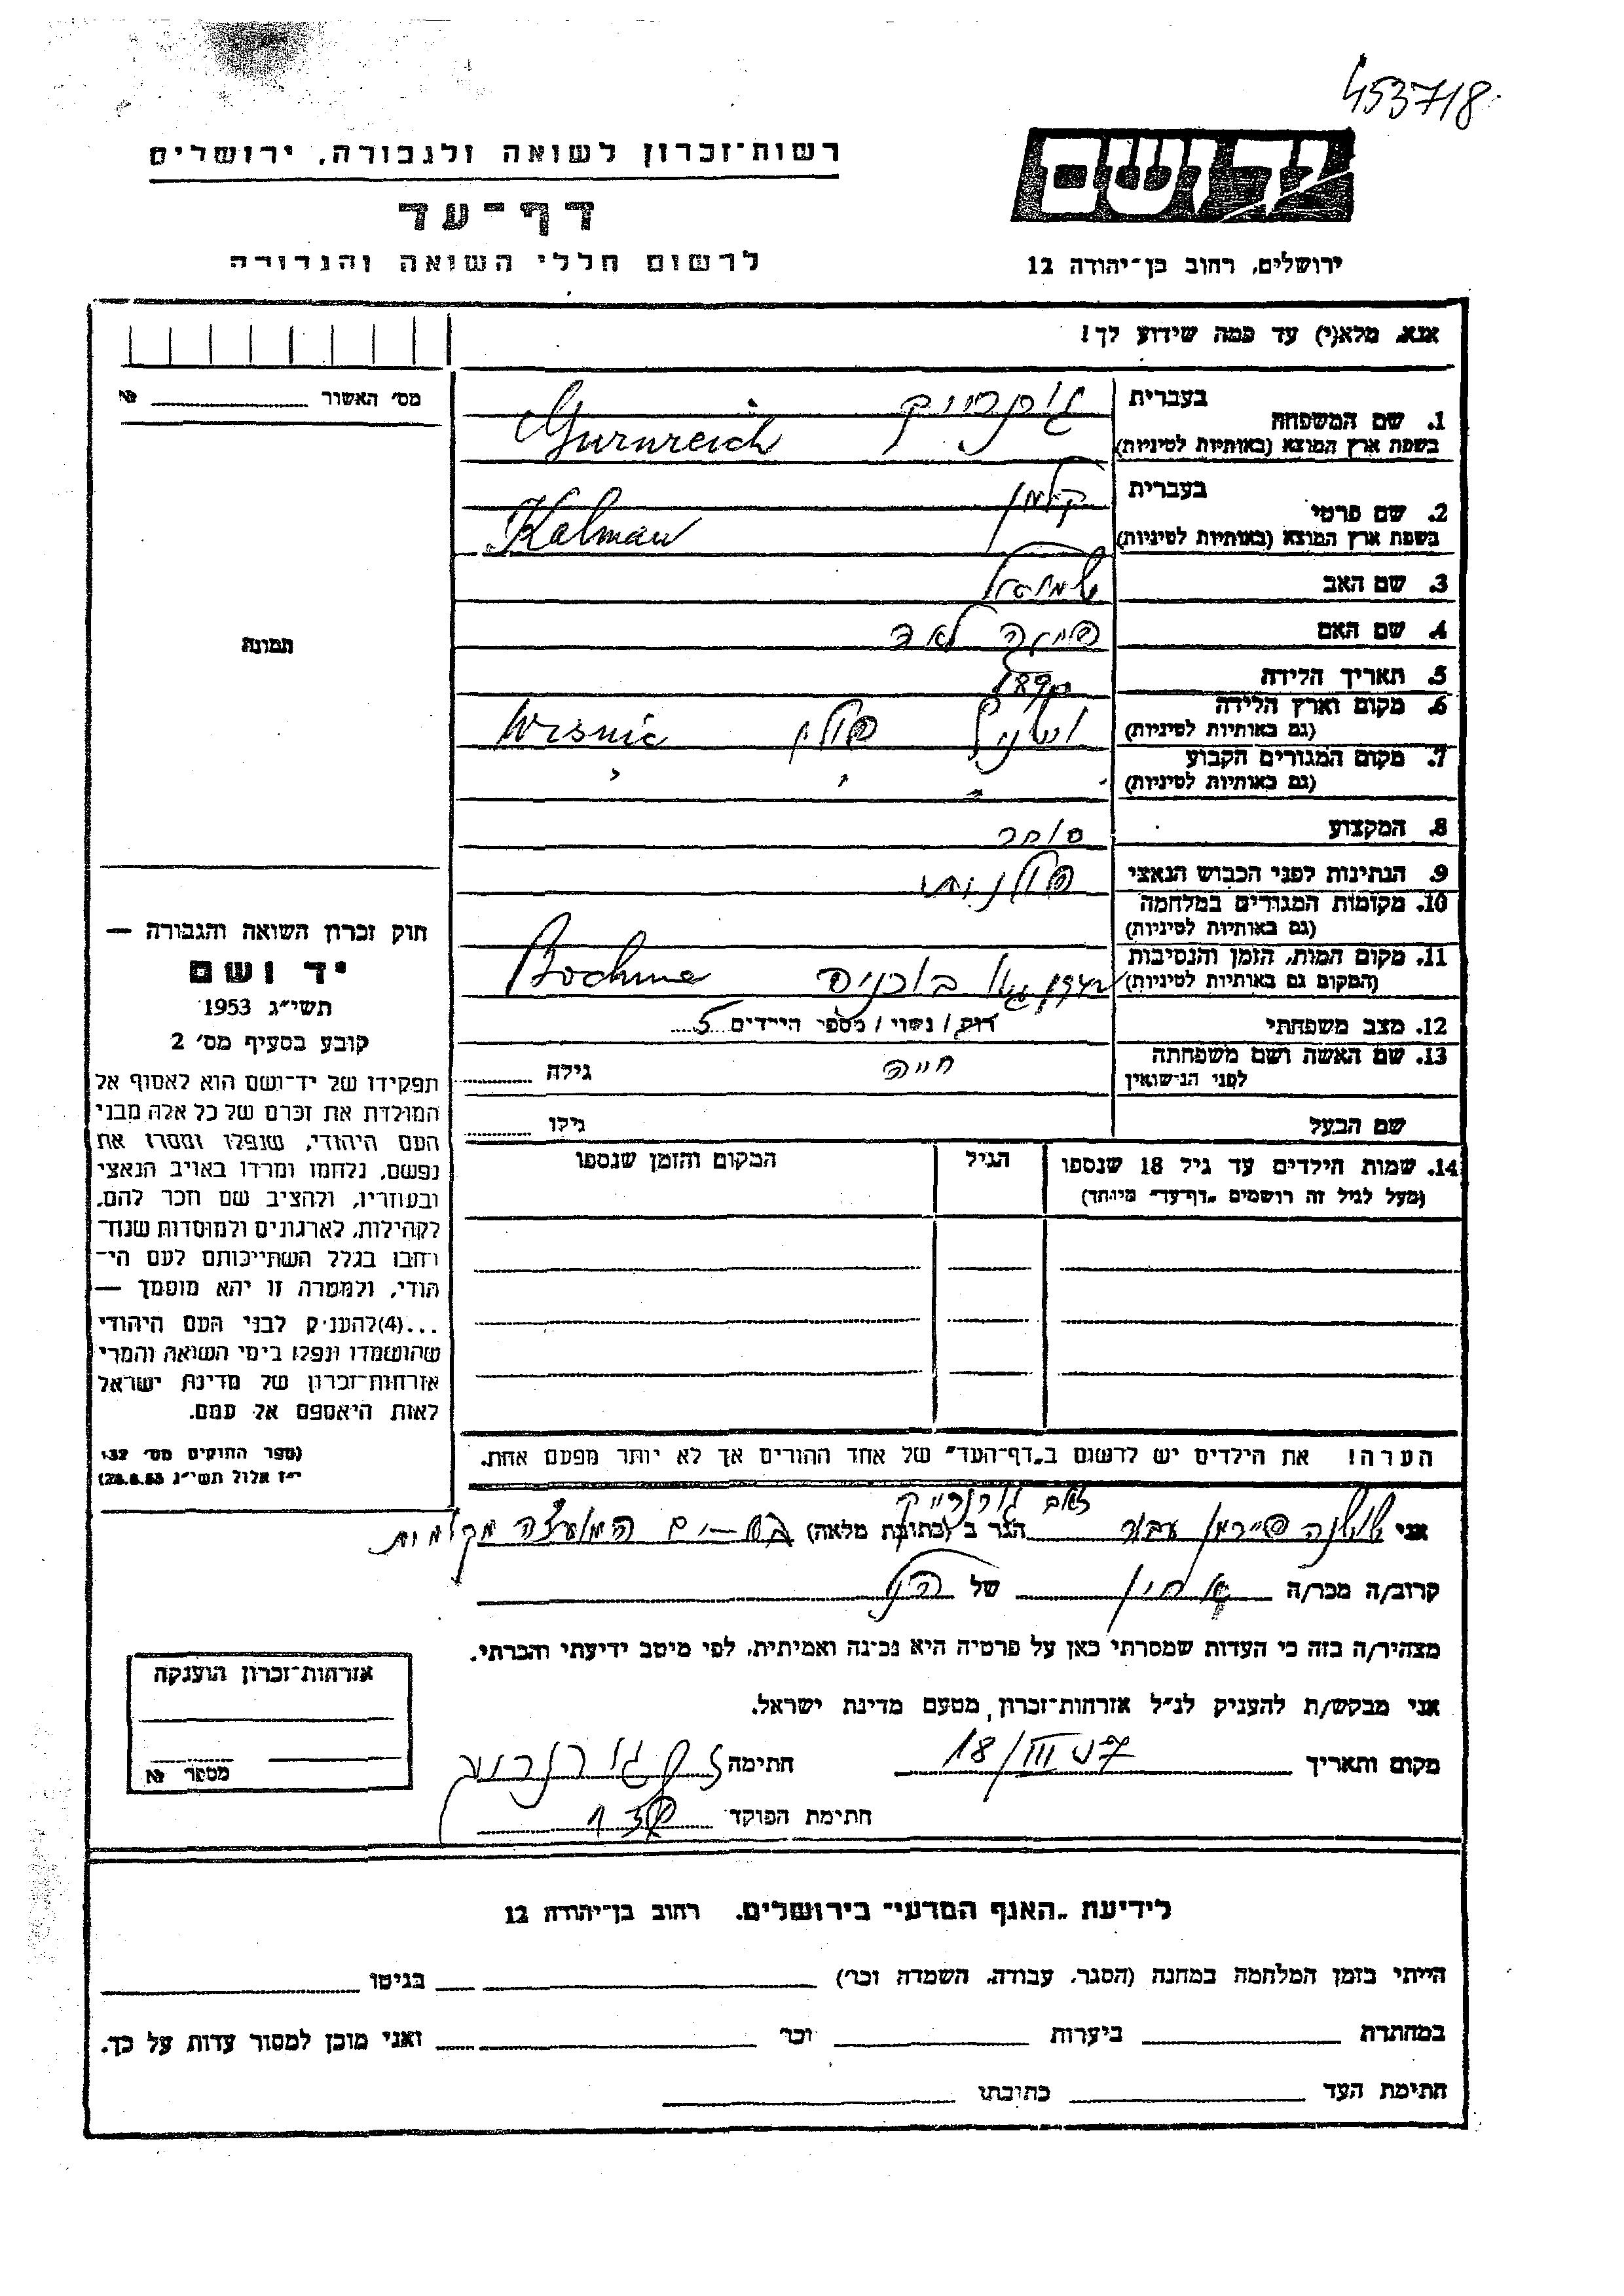 453718
יד ושם
רשות־זכרון לשואה ולגבורה, ירושלים
דף־עד
לרשום חללי השואה והגבורה
ירושלים, רחוב בן־יהודה 12
אנא, מלא(י) עד כמה שידוע לך!
מס' האשור № 
1. שם המשפחה
בעברית
בשפת ארץ המוצא (באותיות לטיניות)
Gurnreich
2. שם פרטי
בעברית קלמן
בשפת ארץ המוצא (באותיות לטיניות)
Kalman
3. שם האב שמואל
4. שם האם לאה
5. תאריך הלידה
6. מקום וארץ הלידה
(גם באותיות לטיניות)
פולין Wisnic
7. מקום המגורים הקבוע
(גם באותיות לטיניות)
8. המקצוע סוחר
9. הנתינות לפני הכבוש הנאצי פולנית
10. מקומות המגורים במלחמה
(גם באותיות לטיניות)
11. מקום המות, הזמן והנסיבות
(המקום גם באותיות לטיניות)
Bochnia
12. מצב משפחתי רווק / נשוי / מספר הילדים 5
13. שם האשה ושם משפחתה
לפני הנישואין
חיה גילה
שם הבעל גילו
14. שמות הילדים עד גיל 18 שנספו
(מעל לגיל זה רושמים "דף־עד" מיוחד)
הגיל
המקום והזמן שנספו
הערה! את הילדים יש לרשום ב"דף־העד" של אחד ההורים אך לא יותר מפעם אחת.
תמונה
חוק זכרון השואה והגבורה —
יד ושם
תשי"ג 1953
קובע בסעיף מס' 2
תפקידו של יד־ושם הוא לאסוף אל
המולדת את זכרם של כל אלה מבני
העם היהודי, שנפלו ומסרו את
נפשם, נלחמו ומרדו באויב הנאצי
ובעוזריו, ולהציב שם וזכר להם,
לקהילות, לארגונים ולמוסדות שנח־
רבו בגלל השתייכותם לעם הי־
הודי, ולמטרה זו יהא מוסמך —
...(4)להעניק לבני העם היהודי
שהושמדו ונפלו בימי השואה והמרי
אזרחות־זכרון של מדינת ישראל
לאות היאספם אל עמם.
(ספר החוקים מס' 132
י"ז אלול תשי"ג 28.8.53)
אני שושנה עבור הגר ב (כתובת מלאה)
קרוב/ה מכר/ה של הנ"ל
מצהיר/ה בזה כי העדות שמסרתי כאן על פרטיה היא נכונה ואמיתית, לפי מיטב ידיעתי והכרתי.
אני מבקש/ת להעניק לנ"ל אזרחות־זכרון, מטעם מדינת ישראל.
מקום ותאריך 18/III 57 חתימה
חתימת הפוקד
אזרחות־זכרון הוענקה
מספר №
לידיעת "האגף המדעי" בירושלים, רחוב בן־יהודה 12
הייתי בזמן המלחמה במחנה (הסגר, עבודה, השמדה וכו') בגיטו
במחתרת ביערות וכו' ואני מוכן למסור עדות על כך.
חתימת העד כתובתו